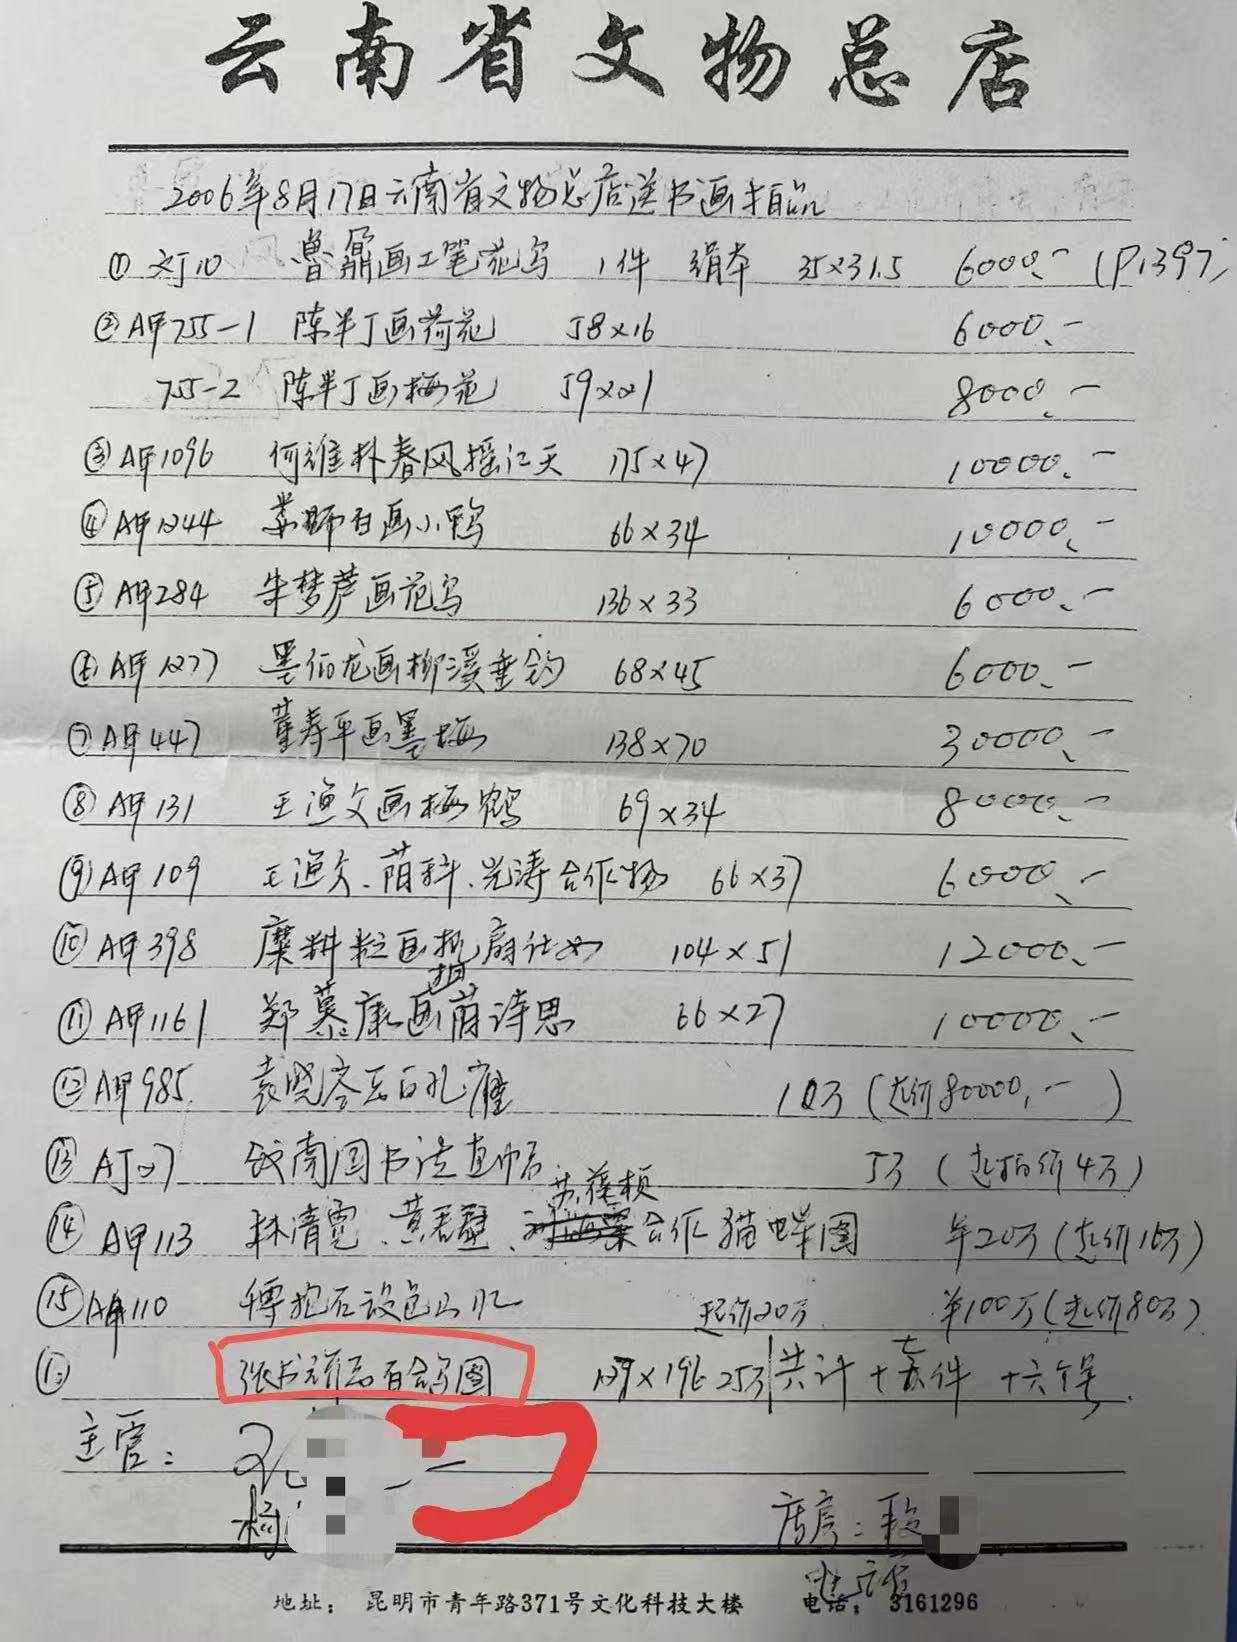 云南省文物总店
2006年8月17日云南省文物总店送书画拍品
① 文J10 鲁鼐画工笔花鸟 1件 绢本 35×31.5 6000、- (P1397)
② A甲755-1 陈半丁画荷花 58×16 6000、-
755-2 陈半丁画梅花 59×21 8000、-
③ A甲1096 何维朴春风摇江天 175×47 10000、-
④ A甲1244 娄师白画小鸭 66×34 10000、-
⑤ A甲284 朱梦芦画花鸟 136×33 6000、-
⑥ A甲1277 墨伯龙画柳溪垂钓 68×45 6000、-
⑦ A甲447 董寿平画墨梅 138×70 30000、-
⑧ A甲131 王渔父画梅鹤 69×34 8000、-
⑨ A甲109 王渔父、荫科、光涛合作物 66×37 6000、-
⑩ A甲398 糜耕耘画执扇仕女 104×51 12000、-
⑪ A甲1161 郑慕康画蕉荫诗思 66×27 10000、-
⑫ A甲985 袁晓岑画孔雀 10万 (起价80000,-)
⑬ AJ27 钱南园书法直幅 5万 (起拍价4万)
苏葆桢
⑭ A甲113 林清霓、黄君璧、合作猫蝶图 单20万 (起价16万)
⑮ A甲110 傅抱石设色山水 起价20万 单100万 (起价80万)
张书旂画百鸽图 139×196 25万 共计十七件 十六个号
主管:
杨
库房: 段
电话
地址: 昆明市青年路371号文化科技大楼 电话: 3161296